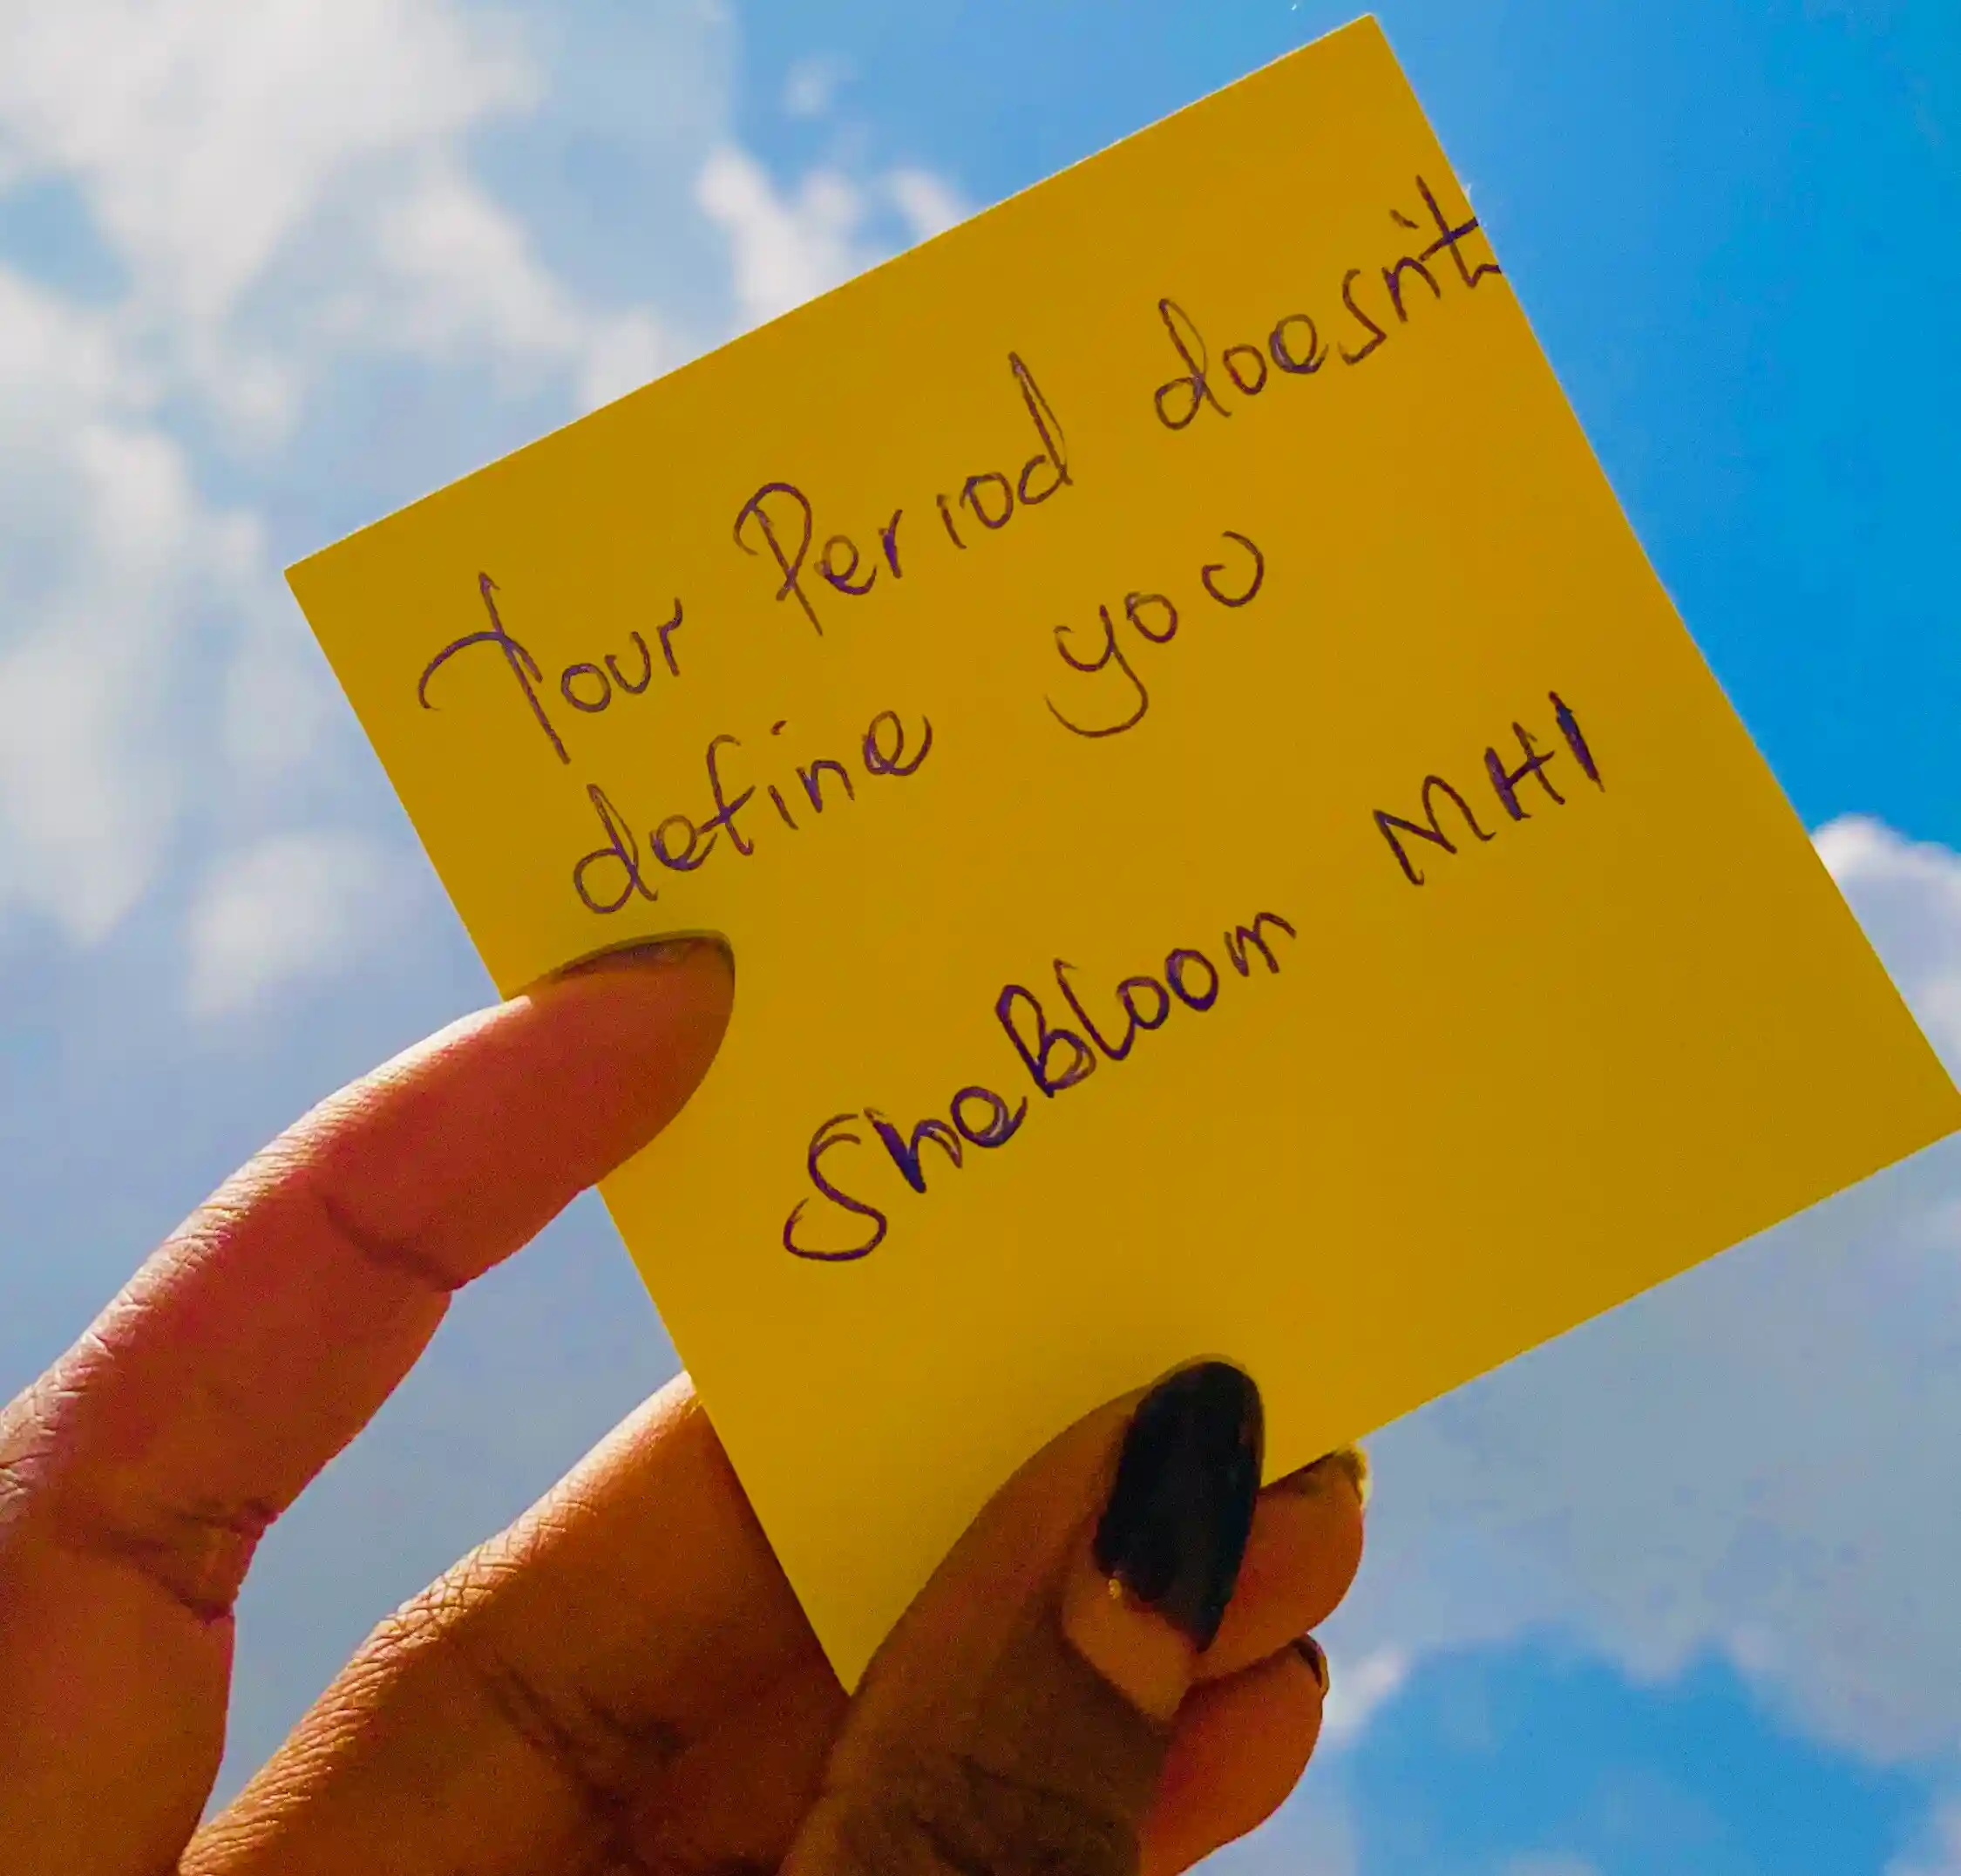 Your Period doesn't
define you
SheBloom MHI